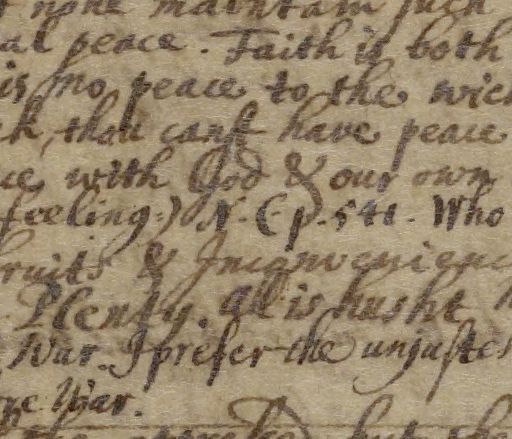 none maintain such
al peace. Faith is both
is no peace to the wic
ck, thou canst have peace
ce with God & our own
feeling:) N. C. p. 541. Who
fruits & Inconvenienc
Plenty. All is husht
War. I prefer the unjustes
War.
but the